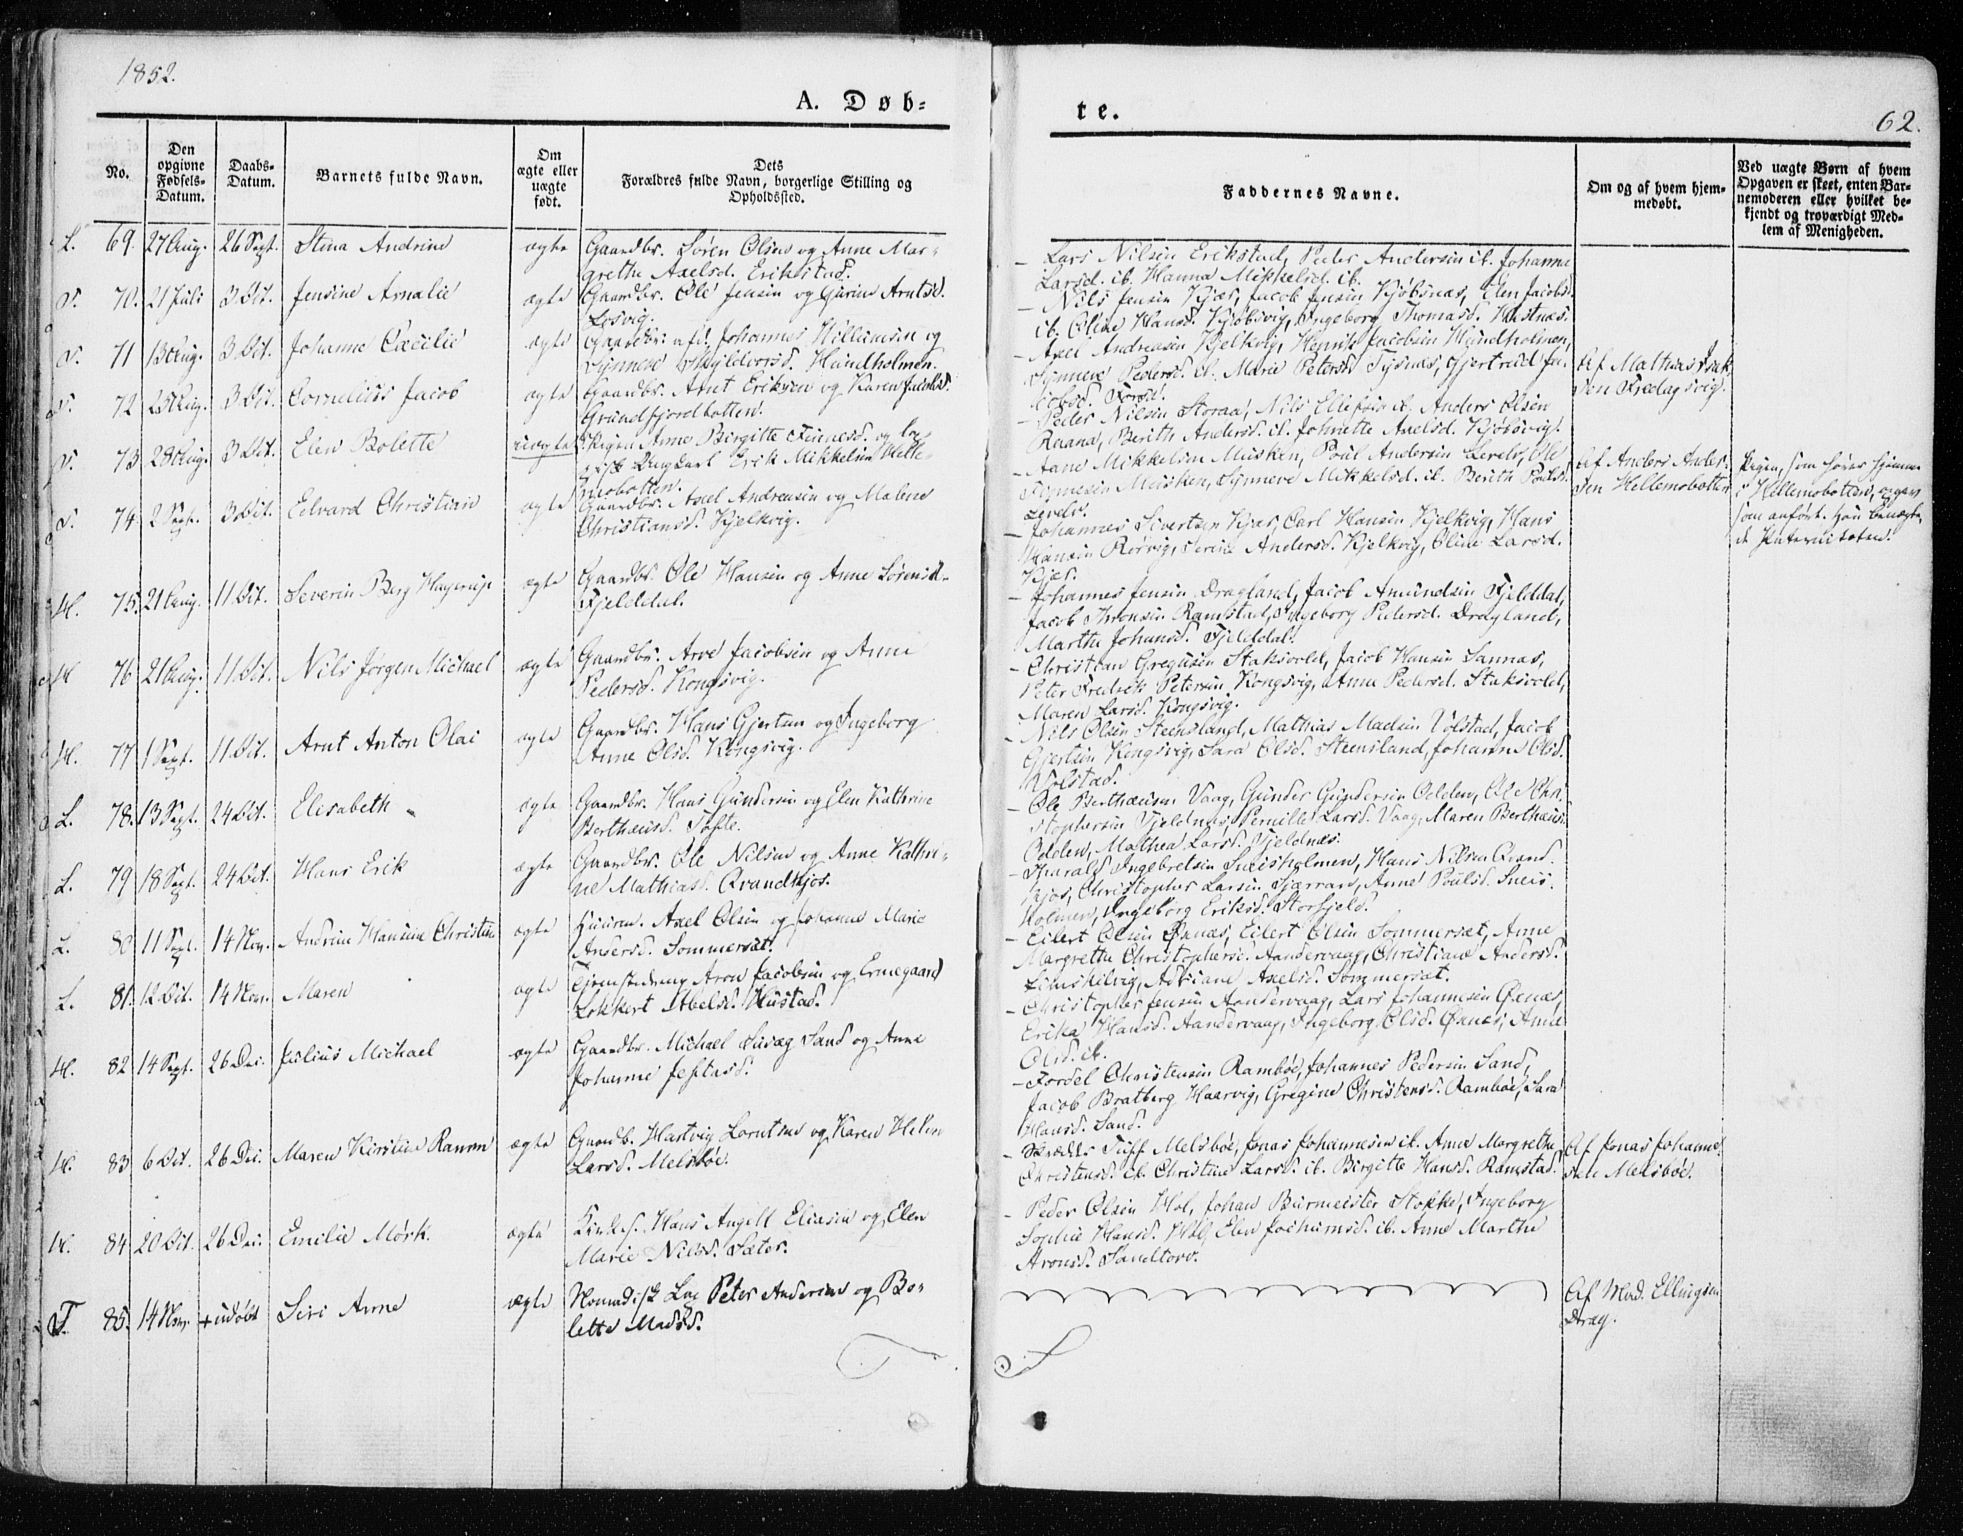 1852.
A. Døb-
te.
62.
No.
Den opgivne Fødsels-Datum.
Daabs-Datum.
Barnets fulde Navn.
Om ægte eller uægte født.
Dets
Forældres fulde Navn, borgerlige Stilling og
Opholdssted.
Faddernes Navne.
Om og af hvem hjem-
medøbt.
Ved uægte Børn af hvem
Opgaven er skeet, enten Bar-
nemoderen eller hvilket be-
kjendt og troværdigt Med-
lem af Menigheden.
L. 69. 27 Aug. 26 Sept. Andrine ægte Gaardbr. Søren Olsen og Anne Mar-
grethe Axelsd. Erikstad.
Lars Nilsen Erikstad, Peder Andersen ib. Johanne
Larsd. ib. Hanna Mikkelsd. ib.
70. 21 Juli 3 Oct. Jensine Amalie ægte Gaardbr. Ole Jensen og Gurine Arntsd.
Nils Jensen Kjær, Jacob Jensen Kjøbsnæs, Elen Jacobsd.
ib. Oline Hansd. Kjøbsvig, Ingeborg Thomasd.
71 13 Aug. 3 Oct. Johanne Cæcilie ægte Johannes Willumsen og
Synneve Hundholmen.
Axel Andreasen Kjelkvig, Henrik Jacobsen Hundholmen,
Synneve Pedersd. ib. Marie Petersd. Tysnæs, Gjertrud Ja-
cobsd.
Af Mathias Isak-
sen Fredagsvig.
72 23 Aug. 3 Oct. Cornelius Jacob ægte Gaardbr. Arnt Eriksen og Karen Jacobsd.
Grundfjordbotten.
Peder Nilsen Storaa, Nils Ellefsen ib. Anders Olsen
Berith Andersd. ib. Johnette Axelsd. Kjøbsvig.
73 28 Aug. 3 Oct. Elen Bolette uægte Pigen Anne Birgitte Finnesd. og
Erik Mikkelsen Helle-
mobotten.
Aane Mikkelsen Musken, Poul Andersen Ole
Finnesen Musken, Synneve Mikkelsd. ib. Berith Poulsd.
Af Anders Ander-
sen Hellemobotten
Pigen, som hører hjemme
i Hellemobotten, opgav
som anført. Han benægte-
de Paterniteten.
74. 2 Sept. 3 Oct. Edvard Christian ægte Gaardbr. Axel Andreasen og Malene
Christiansd. Kjelkvig.
Johannes Sivertsen Kjær, Carl Hansen Kjelkvig, Hans
Hansen Rørvig, Andersd. Kjelkvig, Oline Larsd.
Kjær.
H. 75. 21 Aug. 11 Oct. Severin Berg Hagerup ægte Gaardbr. Ole Hansen og Anne Sørensd.
Fjelddal.
Johannes Jensen Dragland, Jacob Amundsen Fjelddal,
Jacob Ramstad, Ingeborg Pedersd. Dragland,
Marthe Johansd. Fjelddal.
H 76 21 Aug. 11 Oct. Nils Jørgen Michael ægte Gaardbr. Arve Jacobsen og Anne
Pedersd. Kongsvig.
Christian Gregusen Staksvold, Jacob Hansen Sannæs,
Peter Fredrik Petersen Kongsvig, Anne Pedersd. Staksvold,
Maren Larsd. Kongsvig.
H. 77 1 Sept. 11 Oct. Arnt Anton Olai ægte Gaardbr. Hans Gjertsen og Ingeborg
Anne Olsd. Kongsvig.
Nils Olsen Steensland, Mathias Madsen Volstad, Jacob
Gjertsen Kongsvig, Sara Olsd. Steensland, Johanna Olsd.
Volstad.
L. 78. 13 Sept. 24 Oct. Elisabeth ægte Gaardbr. Hans Gundersen og Elen Kathrine
Berthæusd.
Ole Berthæusen Vaag, Gunder Gundersen Odden, Ole Chri-
stophersen Tjeldnæs, Pernille Larsd. Vaag, Maren Berthæusd.
Odden, Mathea Larsd. Tjeldnæs.
L. 79 18 Sept. 24 Oct. Hans Erik ægte Gaardbr. Ole Nilsen og Anne Kathri-
ne Mathiasd. Qvandkjos.
Harald Ingebretsen Sneisholmen, Hans Nilsen Qvand-
kjos, Christopher Larsen Anne Poulsd. Sneis-
holmen, Ingeborg Eriksd. Storfjeld.
L. 80 11 Sept. 14 Nov. Andrine Hansine Christine ægte Axel Olsen og Johanne Marie
Andersd. Sommersæt.
Eilert Olsen Øxnæs, Eilert Olsen Sommersæt, Anne
Margrethe Christophersd. Aandervaag, Christiane Andersd.
Adriane Axelsd. Sommersæt.
L. 81. 12 Oct. 14 Nov. Maren ægte Aron Jacobsen og Ermegaard
Lokkert Abelsd. Hustad.
Christopher Jensen Aandervaag, Lars Johannesen Øxnæs,
Erika Hansd. Aandervaag, Ingeborg Olsd. Øxnæs, Anne
Olsd. ib.
H. 82 14 Sept. 26 Dec. Julius Michael ægte Gaardbr. Michael Sand og Anne
Johanne Jeftasd.
Fordel Christensen Rambøe, Johannes Pedersen Sand,
Jacob Bratberg Haarvig, Gregine Christensd. Rambøe, Sara
Hansd. Sand.
H. 83 6 Oct. 26 Dec. Maren Kirstine ægte Gaardb. Hartvig Lorntsen og Karen Helene
Larsd. Melsbøe.
Melsbøe, Jonas Johannesen ib. Anne Margrethe
Christensd. ib. Christine Larsd. ib. Birgitte Hansd. Ramstad.
Af Jonas Johanne-
sen Melsbøe.
H. 84 20 Oct. 26 Dec. Emilie Mørk. ægte Hans Angell Eliasen og Elen
Marie Nilsd. Sæter.
Peder Olsen Hol, Johan Burmeister Stokke, Ingeborg
Sophie Hansd. Hol, Elen Jochumsd. ib. Anne Marthe
Aronsd. Sandtorv.
T. 85. 14 Nov. + udøbt Siri Anne ægte Nomadisk Lap Peter Andersen og Bo-
lette Madsd.
Af Mad. Ellingsen
Drag.